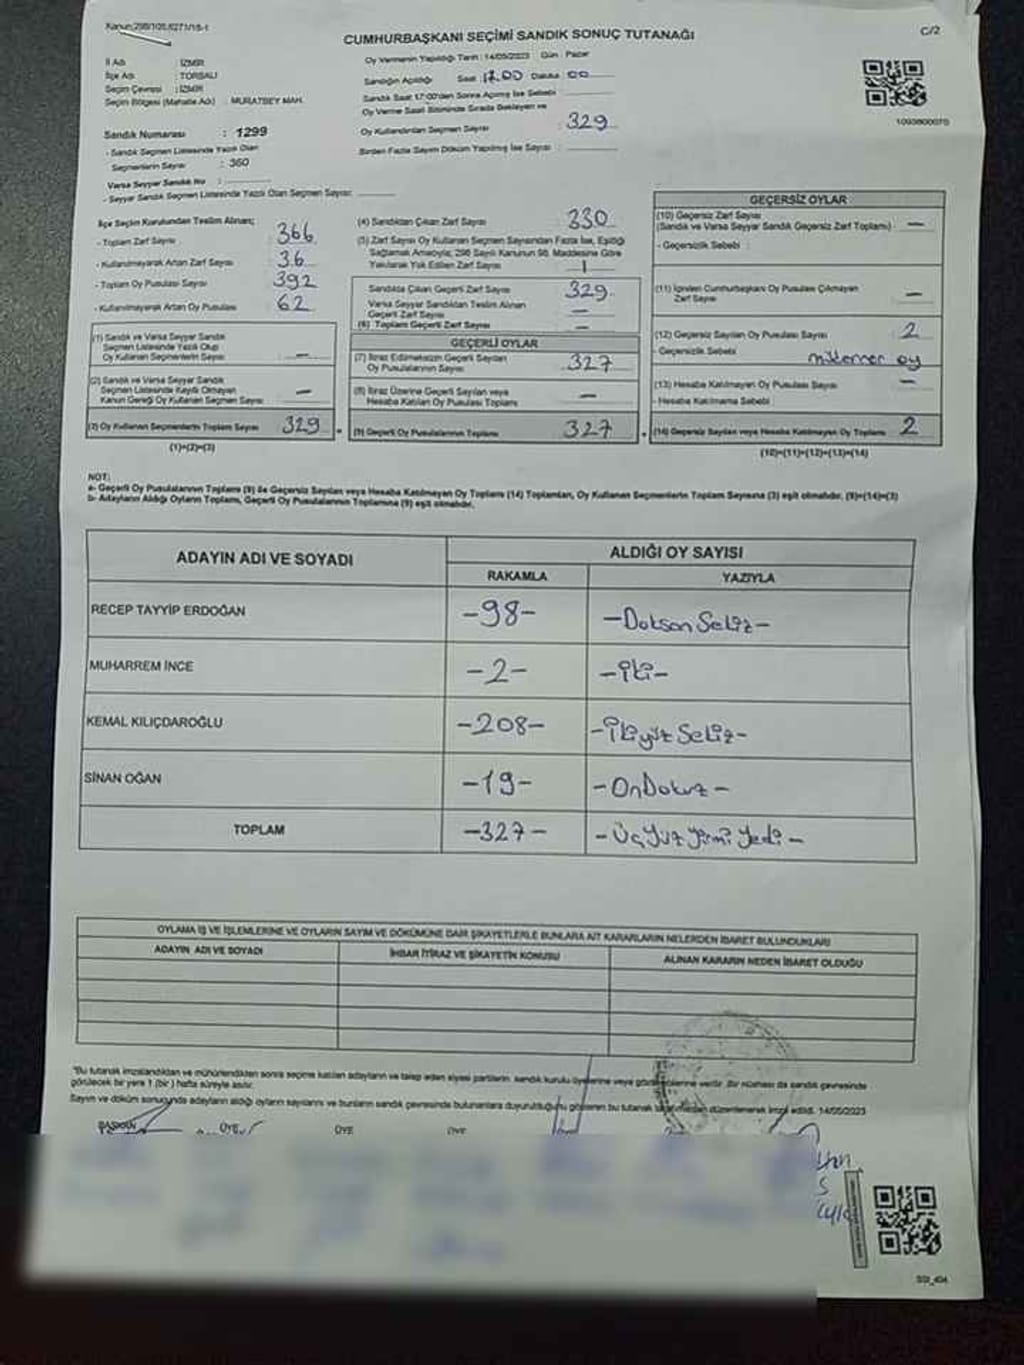 Kanun:298/105,6271/15-1
CUMHURBAŞKANI SEÇİMİ SANDIK SONUÇ TUTANAĞI
C/2
İl Adı : İZMİR
İlçe Adı : TORBALI
Seçim Çevresi : İZMİR
Seçim Bölgesi (Mahalle Adı) : MURATBEY MAH.
Sandık Numarası : 1299
- Sandık Seçmen Listesinde Yazılı Olan
Seçmenlerin Sayısı : 360
Varsa Seyyar Sandık No :
- Seyyar Sandık Seçmen Listesinde Yazılı Olan Seçmen Sayısı:
Oy Vermenin Yapıldığı Tarih : 14/05/2023 Gün : Pazar
Sandığın Açıldığı Saat : 17.00 Dakika : 00
Sandık Saat 17:00'den Sonra Açılmış İse Sebebi :
Oy Verme Saati Bitiminde Sırada Bekleyen ve
Oy Kullandırılan Seçmen Sayısı : 329
Birden Fazla Sayım Döküm Yapılmış İse Sayısı :
1093800070
İlçe Seçim Kurulundan Teslim Alınan;
- Toplam Zarf Sayısı : 366
- Kullanılmayarak Artan Zarf Sayısı : 36
- Toplam Oy Pusulası Sayısı : 392
- Kullanılmayarak Artan Oy Pusulası : 62
(1) Sandık ve Varsa Seyyar Sandık
Seçmen Listesinde Yazılı Olup
Oy Kullanan Seçmenlerin Sayısı : —
(2) Sandık ve Varsa Seyyar Sandık
Seçmen Listesinde Kayıtlı Olmayan
Kanun Gereği Oy Kullanan Seçmen Sayısı : —
(3) Oy Kullanan Seçmenlerin Toplam Sayısı : 329
(1)+(2)=(3)
(4) Sandıktan Çıkan Zarf Sayısı : 330
(5) Zarf Sayısı Oy Kullanan Seçmen Sayısından Fazla İse, Eşitliği
Sağlamak Amacıyla; 298 Sayılı Kanunun 98. Maddesine Göre
Yakılarak Yok Edilen Zarf Sayısı : 1
Sandıkta Çıkan Geçerli Zarf Sayısı : 329
Varsa Seyyar Sandıktan Teslim Alınan
Geçerli Zarf Sayısı : —
(6) Toplam Geçerli Zarf Sayısı : —
GEÇERLİ OYLAR
(7) İtiraz Edilmeksizin Geçerli Sayılan
Oy Pusulalarının Sayısı : 327
(8) İtiraz Üzerine Geçerli Sayılan veya
Hesaba Katılan Oy Pusulası Toplamı : —
(9) Geçerli Oy Pusulalarının Toplamı : 327
GEÇERSİZ OYLAR
(10) Geçersiz Zarf Sayısı
(Sandık ve Varsa Seyyar Sandık Geçersiz Zarf Toplamı) : —
- Geçersizlik Sebebi :
(11) İçinden Cumhurbaşkanı Oy Pusulası Çıkmayan
Zarf Sayısı : —
(12) Geçersiz Sayılan Oy Pusulası Sayısı : 2
- Geçersizlik Sebebi : mükerrer oy
(13) Hesaba Katılmayan Oy Pusulası Sayısı : —
- Hesaba Katılmama Sebebi :
(14) Geçersiz Sayılan veya Hesaba Katılmayan Oy Toplamı : 2
(10)+(11)+(12)+(13)=(14)
NOT:
a- Geçerli Oy Pusulalarının Toplamı (9) ile Geçersiz Sayılan veya Hesaba Katılmayan Oy Toplamı (14) Toplamları, Oy Kullanan Seçmenlerin Toplam Sayısına (3) eşit olmalıdır. (9)+(14)=(3)
b- Adayların Aldığı Oyların Toplamı, Geçerli Oy Pusulalarının Toplamına (9) eşit olmalıdır.
ADAYIN ADI VE SOYADI
ALDIĞI OY SAYISI
RAKAMLA YAZIYLA
RECEP TAYYİP ERDOĞAN -98- -Doksan Sekiz-
MUHARREM İNCE -2- -İki-
KEMAL KILIÇDAROĞLU -208- -İkiyüz Sekiz-
SİNAN OĞAN -19- -OnDokuz-
TOPLAM -327- -ÜçYüz Yirmi Yedi-
OYLAMA İŞ VE İŞLEMLERİNE VE OYLARIN SAYIM VE DÖKÜMÜNE DAİR ŞİKAYETLERLE BUNLARA AİT KARARLARIN NELERDEN İBARET BULUNDUKLARI
ADAYIN ADI VE SOYADI İHBAR İTİRAZ VE ŞİKAYETİN KONUSU ALINAN KARARIN NEDEN İBARET OLDUĞU
"Bu tutanak imzalandıktan ve mühürlendikten sonra seçime katılan adayların ve talep eden siyasi partilerin, sandık kurulu üyelerine veya gözlemcilerine verilir. Bir nüshası da sandık çevresinde
görülecek bir yere 1 (bir) hafta süreyle asılır.
Sayım ve döküm sonucunda adayların aldığı oyların sayılarını ve bunların sandık çevresinde bulunanlara duyurulduğunu gösteren bu tutanak tarafımızdan düzenlenerek imza edildi. 14/05/2023
BAŞKAN ÜYE ÜYE ÜYE
SSI_404